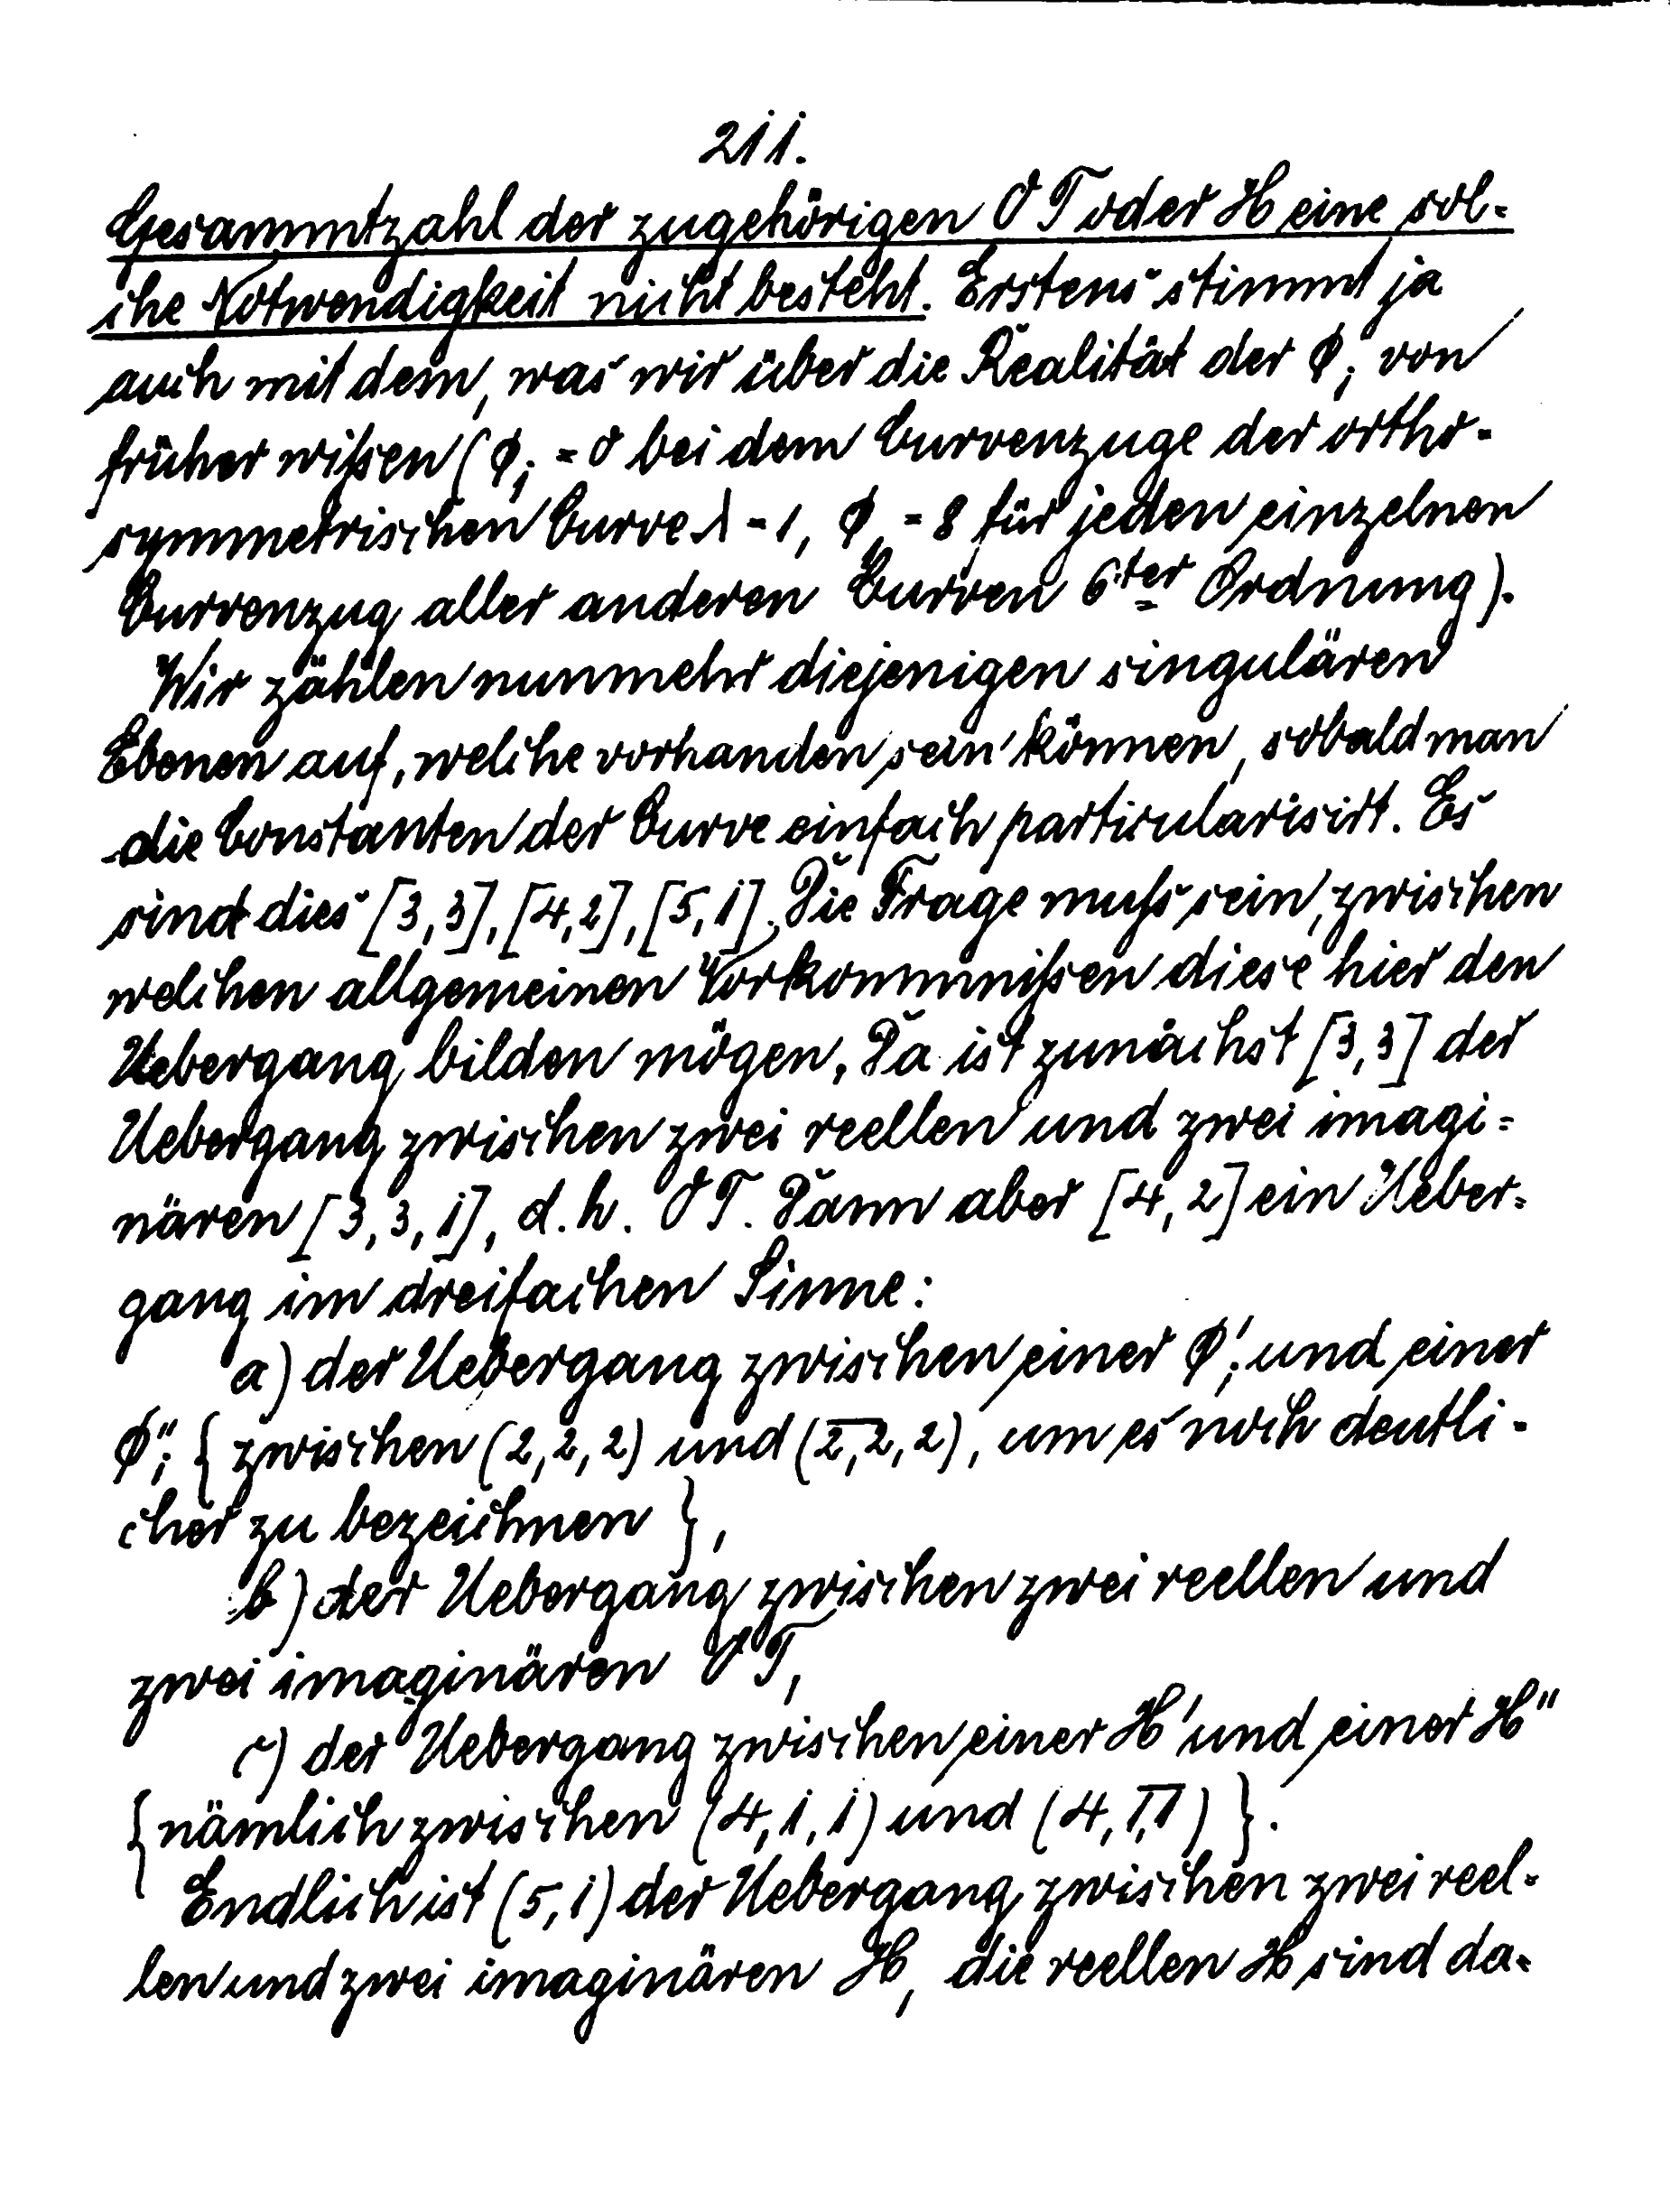 211.
Gesammtzahl der zugehörigen OT oder H eine sol-
che Notwendigkeit nicht besteht. Erstens stimmt ja
auch mit dem, was wir über die Realität der ϕ; von
früher wißen (ϕ; = 0 bei dem Curvenzuge der ortho-
symmetrischen Curve λ = 1, ϕ, = 8 für jeden einzelnen
Curvenzug aller anderen Curven 6ter Ordnung).
Wir zählen nunmehr diejenigen singulären
Ebenen auf, welche vorhanden sein können, sobald man
die Constanten der Curve einfach particularisirt. Es
sind dies [3,3], [4,2], [5,1]. Die Frage muß sein, zwischen
welchen allgemeinen Vorkommnißen diese hier den
Uebergang bilden mögen. Da ist zunächst [3,3] der
Uebergang zwischen zwei reellen und zwei imagi-
nären [3,3,1], d.h. OT. Dann aber [4,2] ein Ueber-
gang im dreifachen Sinne:
a) der Uebergang zwischen einer ϕ'; und einer
ϕ''; { zwischen (2,2,2) und (2̅,2̅,2), um es noch deutli-
cher zu bezeichnen },
b) der Uebergang zwischen zwei reellen und
zwei imaginären OT,
c) der Uebergang zwischen einer H' und einer H''
{ nämlich zwischen (4,1,1) und (4,1̅,1̅) }.
Endlich ist (5,1) der Uebergang zwischen zwei reel-
len und zwei imaginären H, die reellen H sind da-